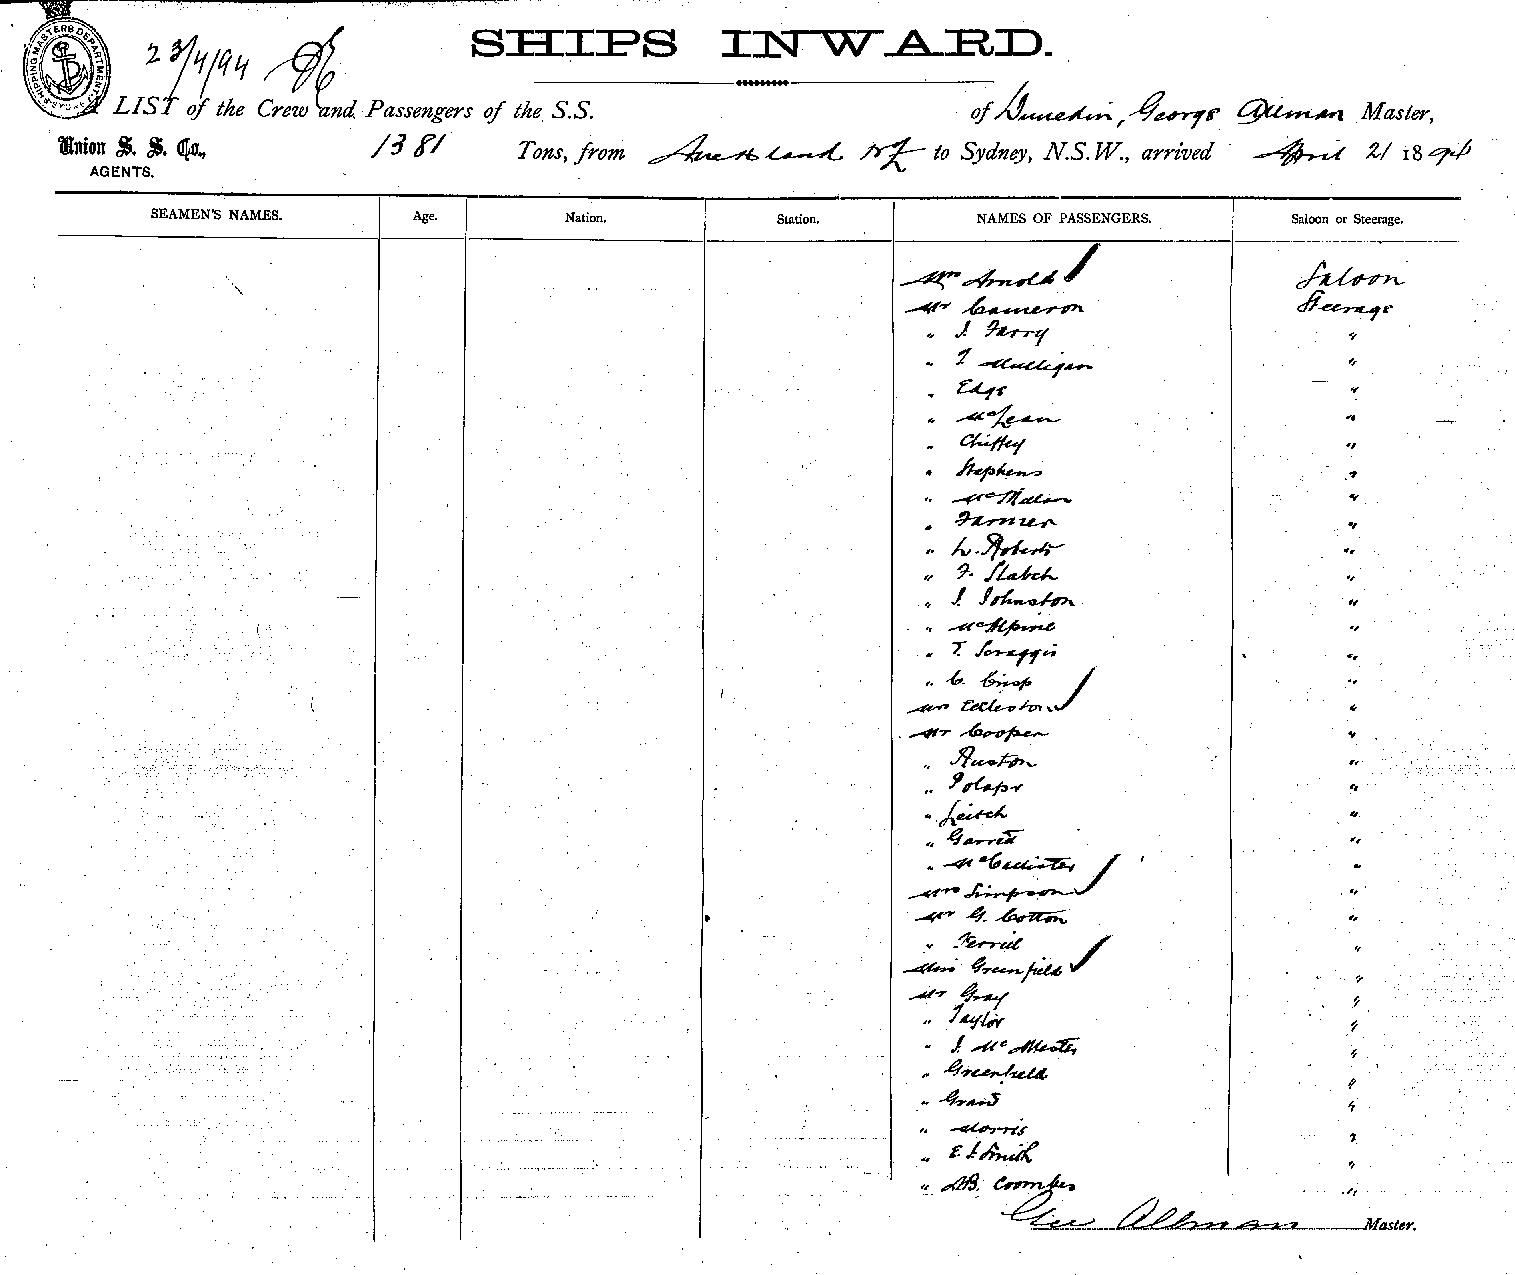 SHIPPING MASTERS DEPARTMENT
23/4/94
SHIPS INWARD.
A LIST of the Crew and Passengers of the S.S. of Dunedin, George Allman Master,
Union S. S. Co., 1381 Tons, from Auckland NZ to Sydney, N.S.W., arrived April 21 1894
AGENTS.
SEAMEN'S NAMES. Age. Nation. Station. NAMES OF PASSENGERS. Saloon or Steerage.
Arnold Saloon
Mr Cameron Steerage
" J. Farry "
" T Mulligan "
" Edge "
" McLean "
" Chiffey "
" Stephens "
" "
" Farmer "
" L. Roberts "
" F. Slatch "
" J. Johnston "
" McAlpine "
" T. Scraggis "
" C. Crisp "
Mrs Eccleston "
Mr Cooper "
" Ruston "
" "
" Leitch "
" Garrett "
" McCallister "
Mrs Simpson "
Mr G. Cotton "
" "
Miss Greenfield "
Mr Gray "
" Taylor "
" J. McMaster "
" Greenfield "
" "
" Morris "
" E. J. Smith "
" Coombes "
Geo Allman Master.